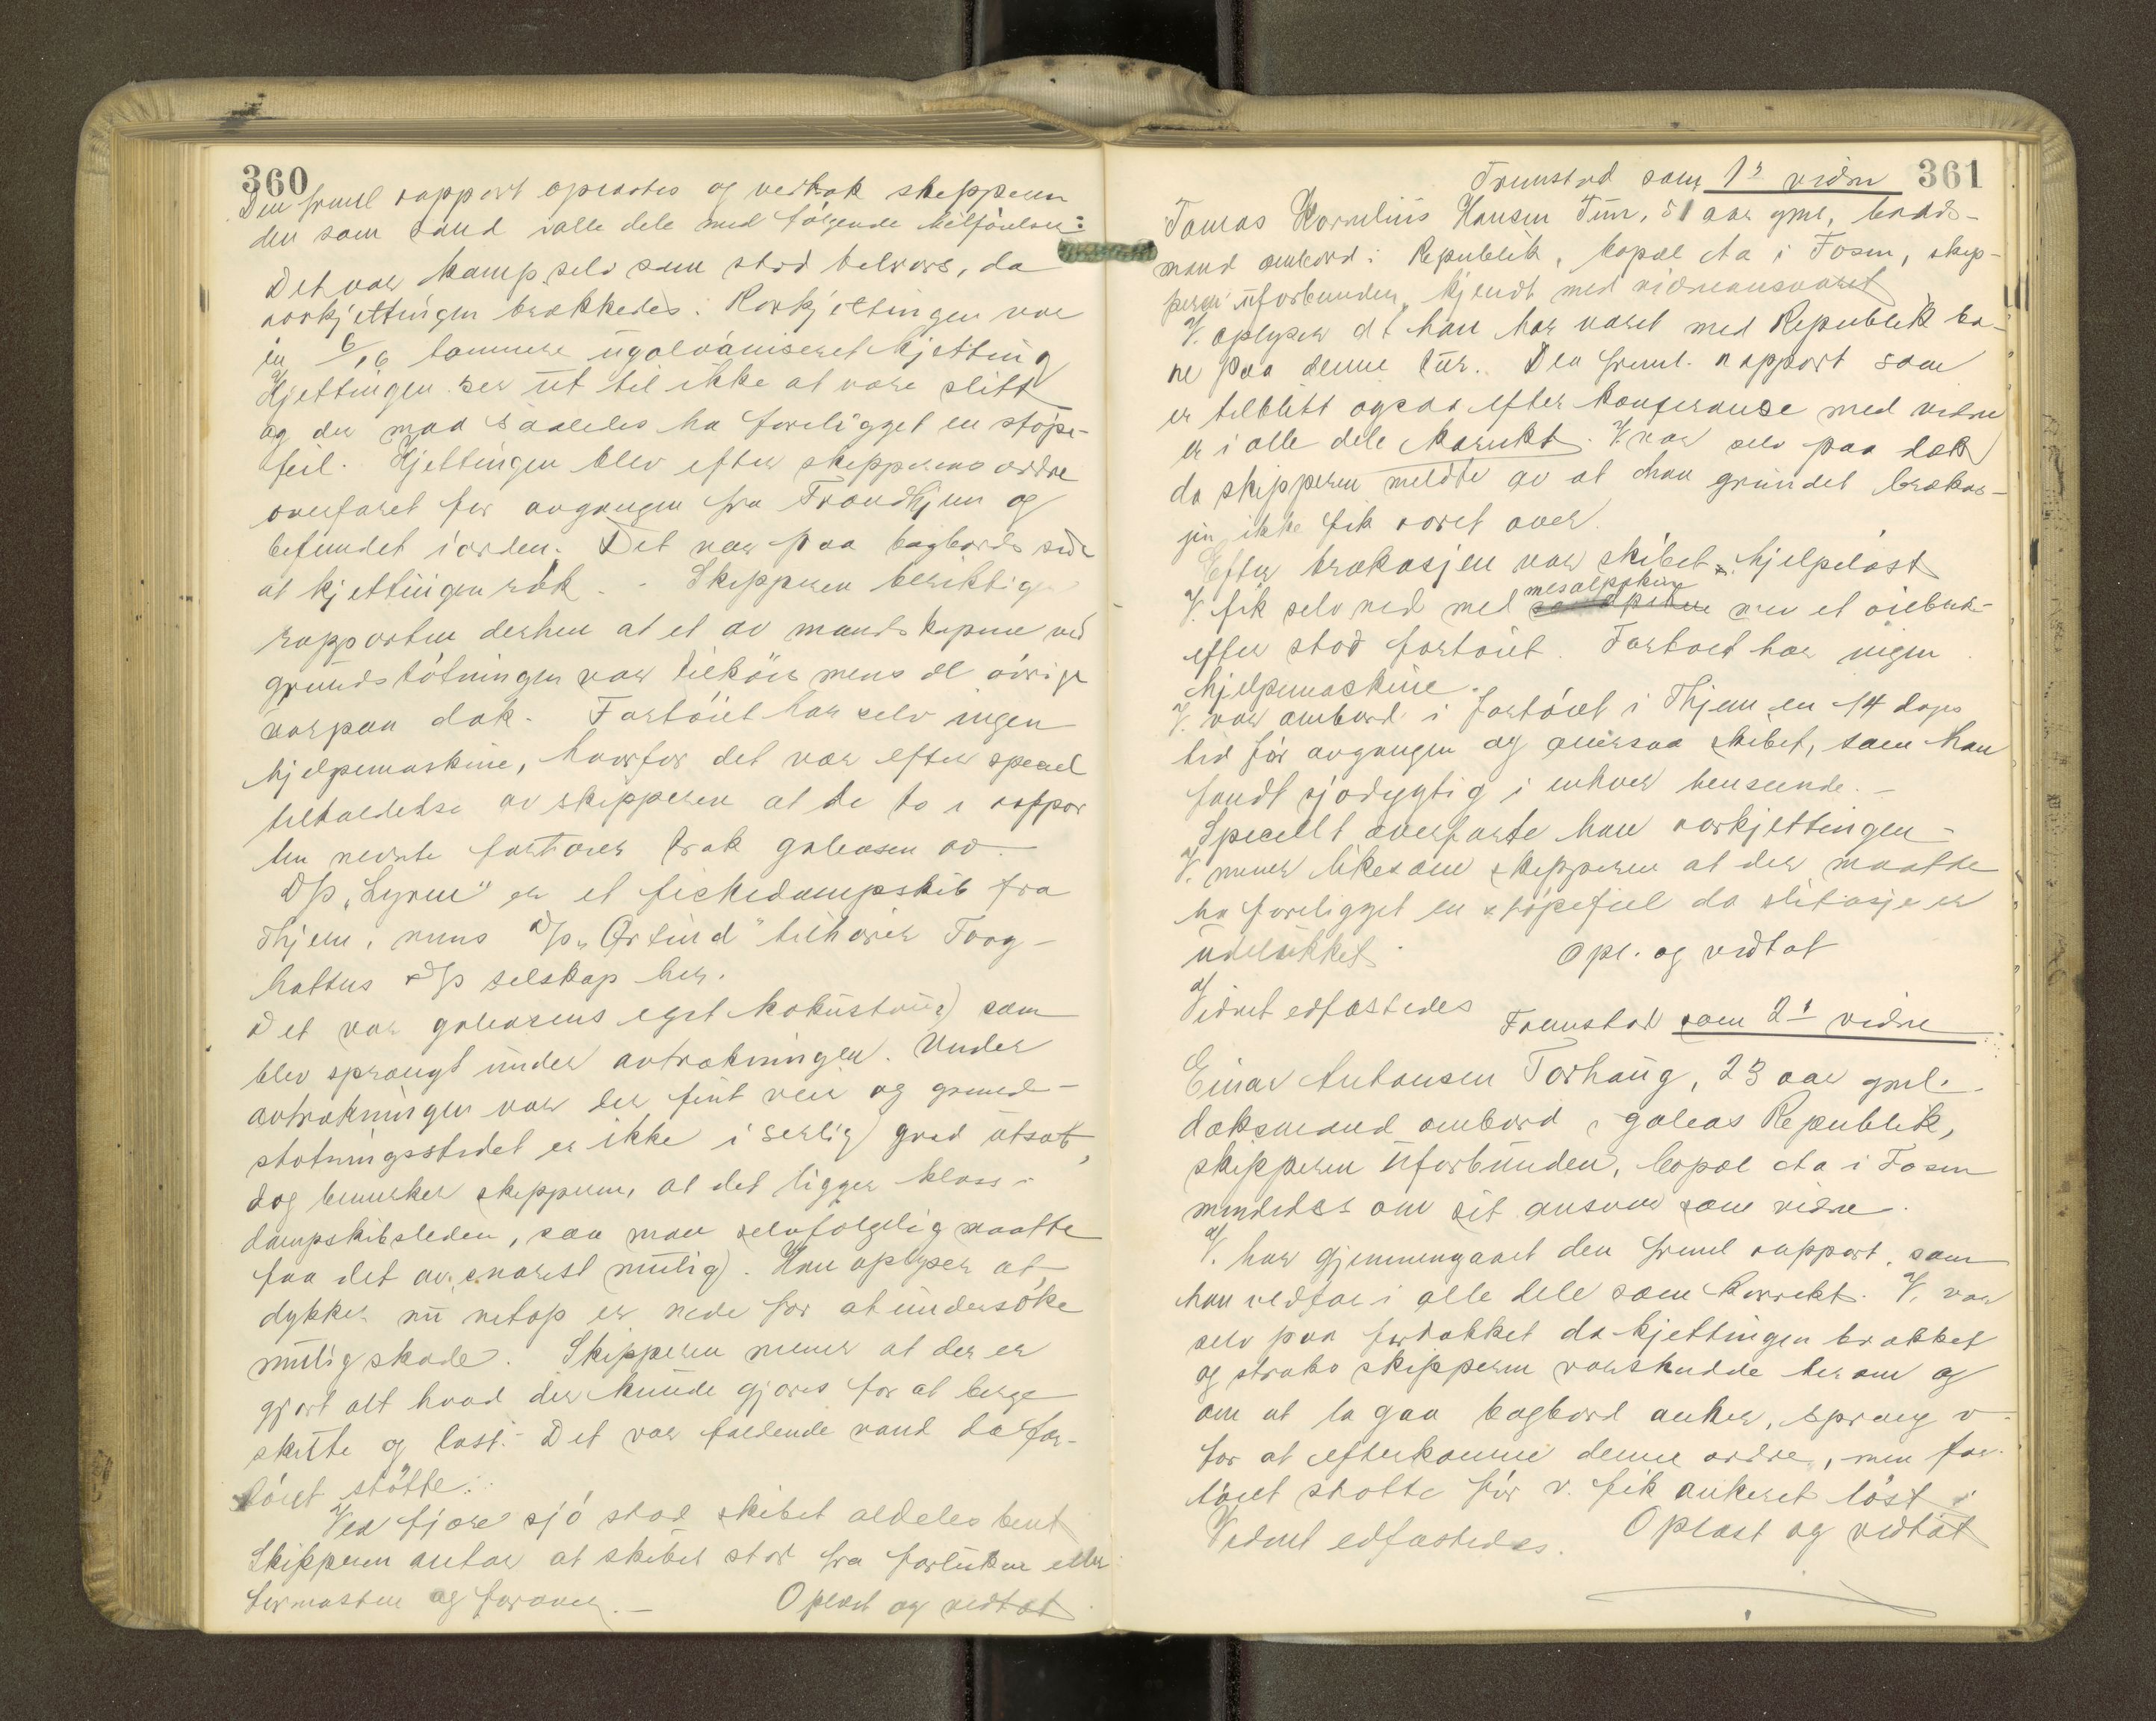 360
Den freml rapport oplæstes og vedtok skipperen
den som sand i alle dele med følgende tilføielser:
Det var komp. selv som stod tilrors, da
rorkjettingen brækkedes. Rorkjettingen var
en 6/16 tommers ugalvaniseret kjetting
Kjettingen ser ut til ikke at være slitt
og der maa saaledes ha foreligget en støpe-
feil. Kjettingen blev efter skipperens ordre
overfaret før avgangen fra Trondhjem og
befundet i orden. Det var paa bagbords side
at kjettingen røk. - Skipperen beriktiger
rapporten derhen at et av mandskapene ved
grundstøtningen var tilkøis mens de øvrige
var paa dæk. Fartøiet har selv ingen
hjelpemaskine, hvorfor det var efter speciel
tilholdelse av skipperen at de to i rappor
ten nevnte fartøier trak galeasen av.
D/p "Lyren" er et fiskedampskib fra
Thjem, mens D/p "Ørtind" tilhører Torg-
hattens D/p selskap her.
Det var galeasens eget kokustaug som
blev sprængt under avtrækningen. Under
avtrækningen var der fint veir og grund-
støtningsstedet er ikke i serlig grad utsat,
dog bemerker skipperen, at det ligger kloss i
dampskibsleden, saa man selvfølgelig maatte
faa det av snarest mulig. Han oplyser at
dykker nu netop er nede for at undersøke
mulig skade. Skipperen mener at der er
gjort alt hvad der kunde gjøres for at berge
skute og last. Det var faldende vand da far-
tøiet støtte.
Ved fjære sjø stod skibet aldeles bent
Skipperen antar at skibet stod fra forluken eller
formasten og forover. - Oplæst og vedtat
361
Fremstod som 1s vidne
Tomas Kornelius Hansen Tun, 51 aar gml, baads-
mand ombord i Republik, bopæl Aa i Fosen, skip-
peren uforbunden, kjendt med vidneansvaret
V. oplyser at han har været med Republik ba-
re paa denne tur. Den freml. rapport som
er tilblitt ogsaa efter konferanse med vidne
er i alle dele korrekt. V. var selv paa dæk
da skipperen meldte av at han grundet brækas-
jen ikke fik roret over.
Efter brækasjen var skibet hjelpeløst
V. fik selv ned mesanpiken men et øieblik
efter stod fartøiet. Fartøiet har ingen
hjelpemaskine.
V. var ombord i fartøiet i Thjem en 14 dags
tid før avgangen og oversaa skibet, som han
fandt sjødygtig i enhver henseende. -
Specielt overfarte han rorkjettingen -
V. mener likesom skipperen at der maatte
ha foreligget en støpefeil da slitasje er
udelukket. Opl. og vedtat
Vidnet edfæstedes
Fremstod som 2t vidne
Einar Antonsen Torhaug, 23 aar gml.
dæksmand ombord i galeas Republik,
skipperen uforbunden, bopæl Aa i Fosen
mindedes om sit ansvar som vidne.
V. har gjennemgaaet den freml rapport, som
han vedtar i alle dele som korrekt. V. var
selv paa fordækket da kjettingen brækket
og straks skipperen varskudde herom og
om at la gaa bagbord anker, sprang v.
for at efterkomme denne ordre, men far-
tøiet støtte før v. fik ankeret løst.
Vidnet edfæstedes. Oplæst og vedtat